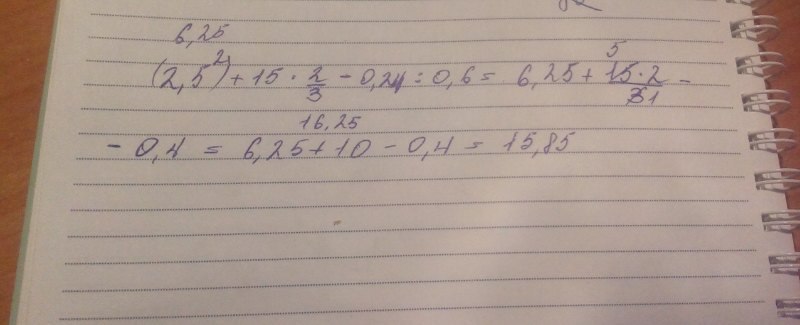 6,25
(2,5²) + 15 · 2/3 - 0,24 : 0,6 = 6,25 + 15·2/31 -
5
16,25
- 0,4 = 6,25 + 10 - 0,4 = 15,85